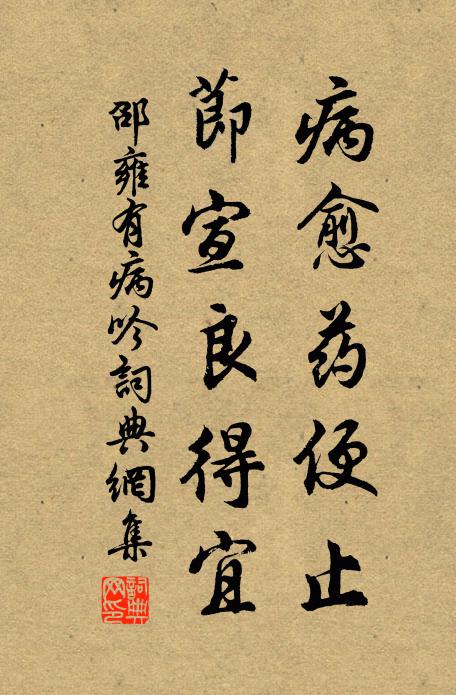 病愈药便止
節宣良得宜
邵雍有病吟詞典網集
詞典
网印